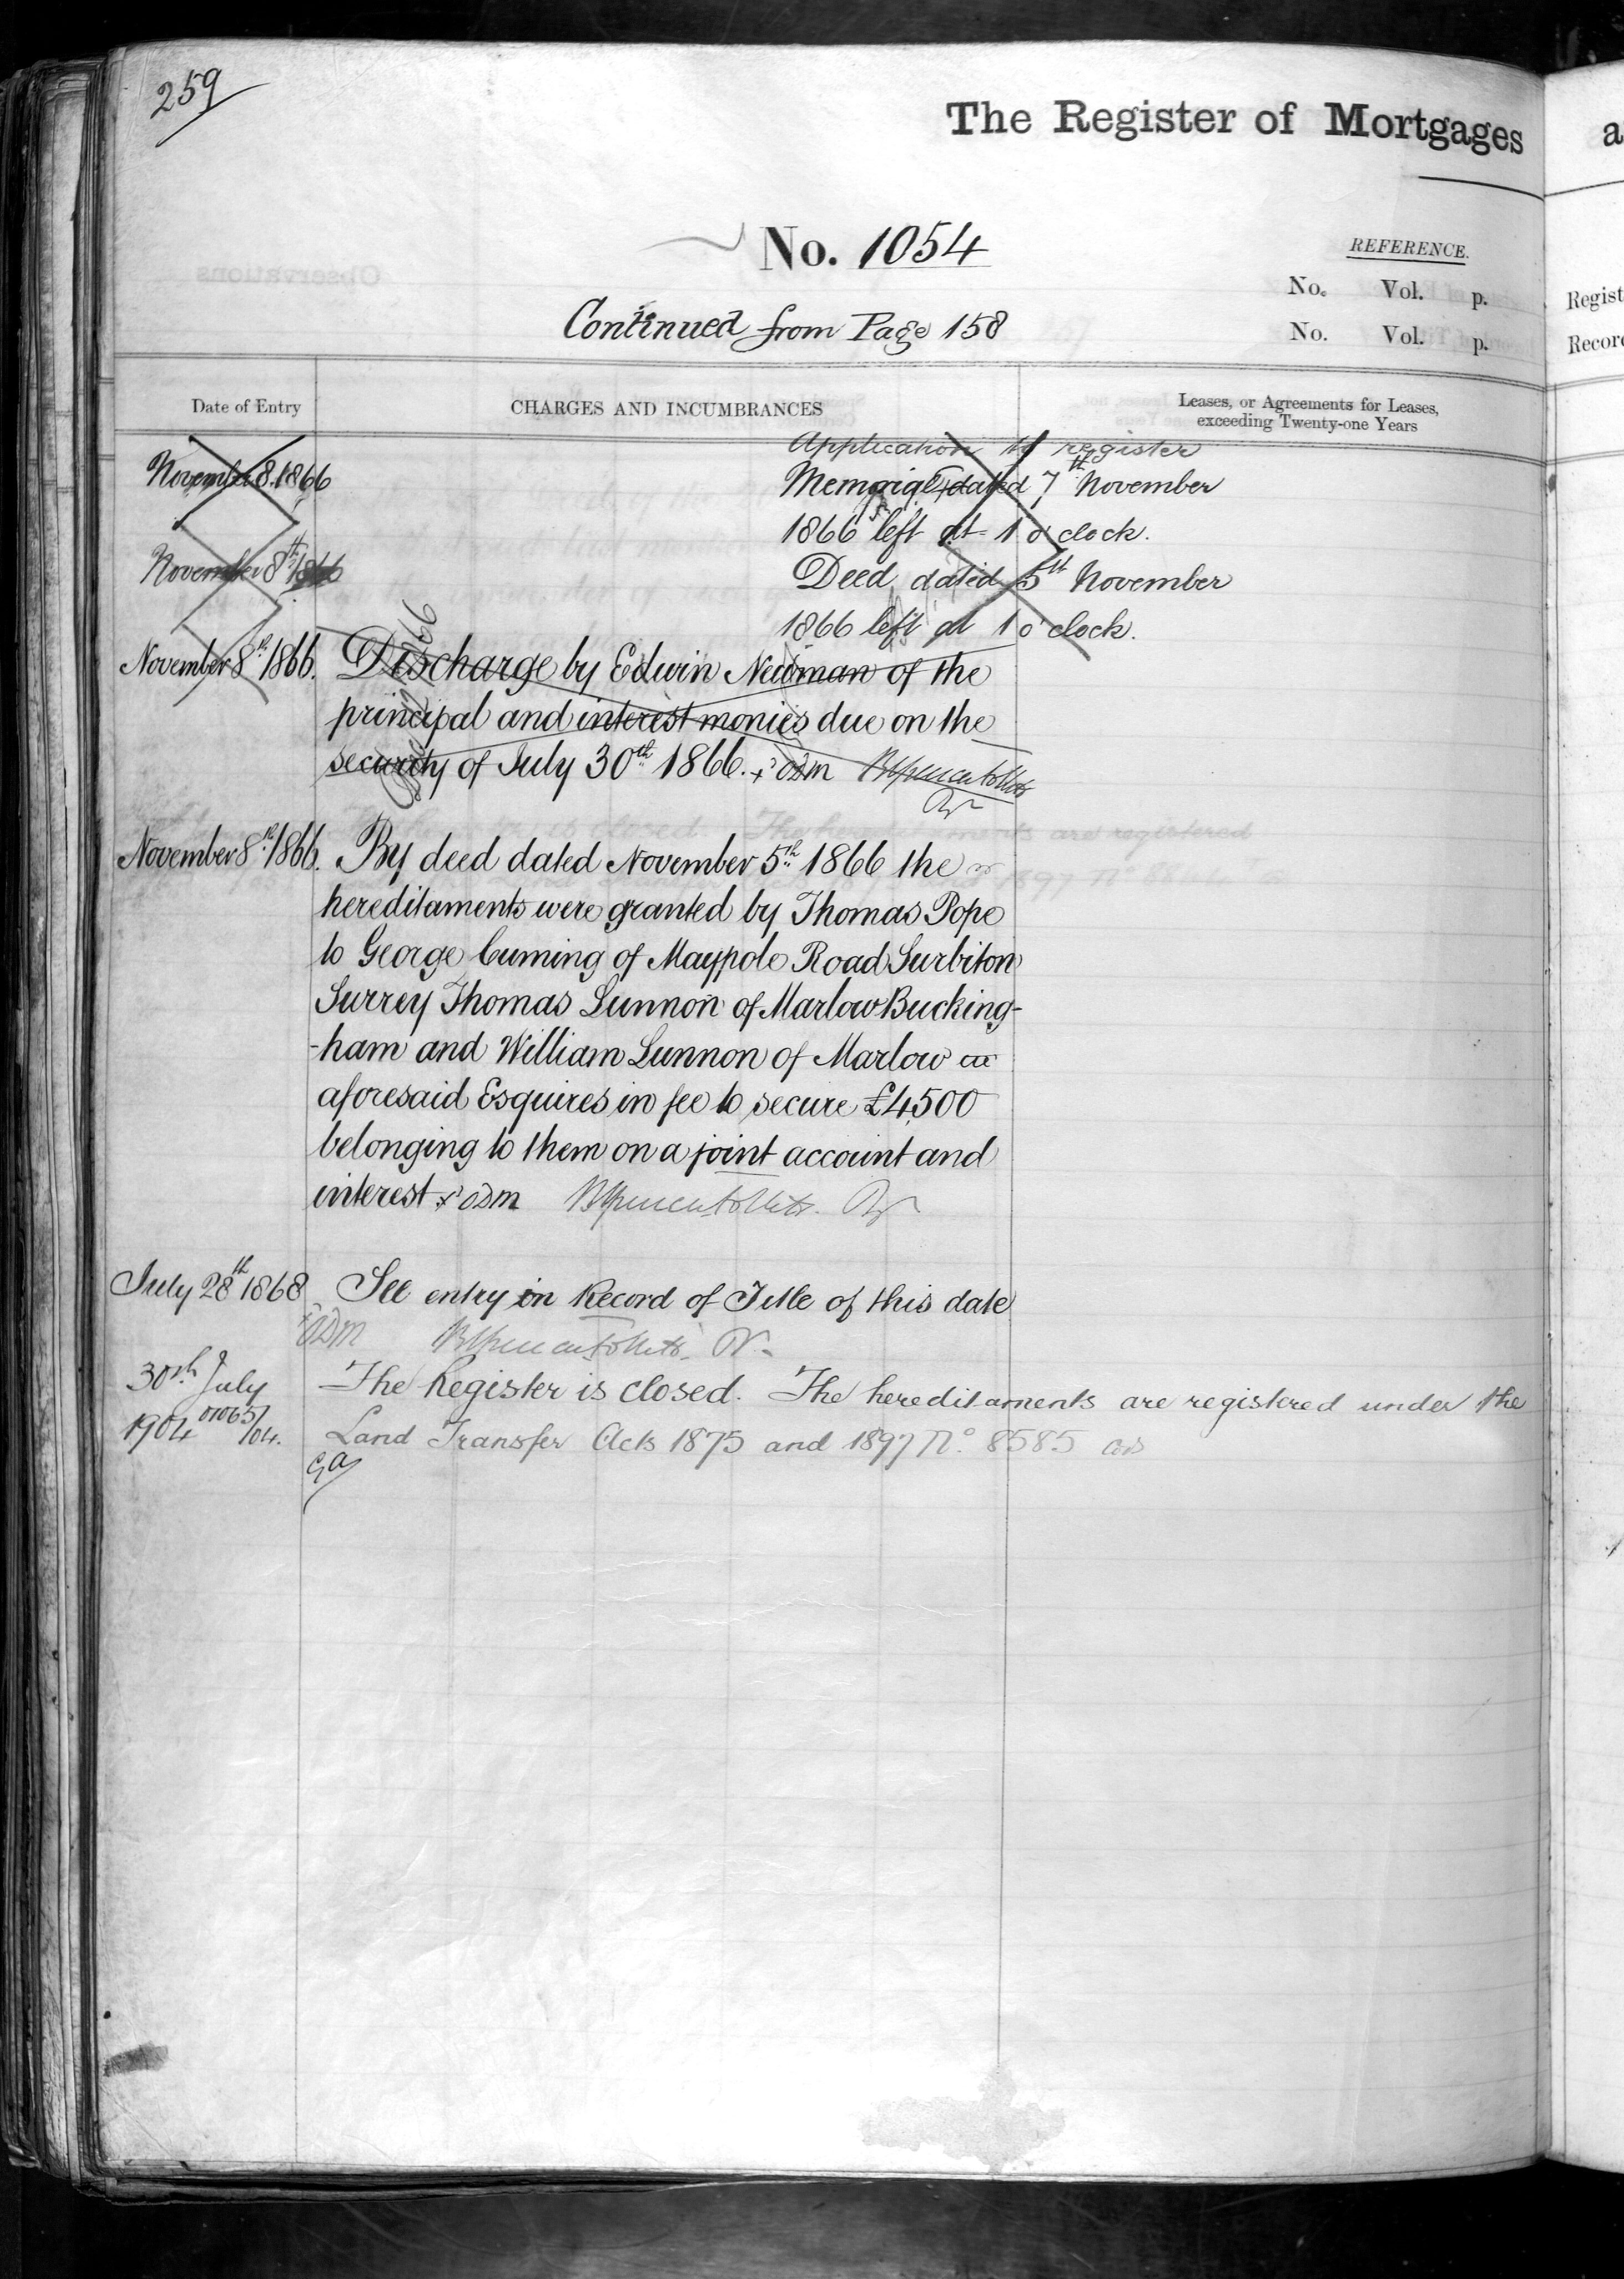 259
The Register of Mortgages
No. 1054
REFERENCE.
No. Vol. p.
Continued from Page 158
No. Vol. p.
Regist
Record
Date of Entry
CHARGES AND INCUMBRANCES
Leases, or Agreements for Leases,
exceeding Twenty-one Years
Application to register
November 8. 1866 Memorial dated 7th November
1866 left at 1 o'clock.
November 8th 1866 Deed dated 5th November
1866 left at 1 o'clock.
November 8th 1866. Discharge by Edwin Newman of the
principal and interest monies due on the
security of July 30th 1866. ODM
November 8th 1866. By deed dated November 5th 1866 the
hereditaments were granted by Thomas Pope
to George Cuming of Maypole Road Surbiton
Surrey Thomas Lunnon of Marlow Bucking-
-ham and William Lunnon of Marlow
aforesaid Esquires in fee to secure £4,500
belonging to them on a joint account and
interest ODM
July 28th 1868 See entry in Record of Title of this date
ODM
30th July The Register is closed. The hereditaments are registered under the
1904 01065/04. Land Transfer Acts 1875 and 1897 No. 8585